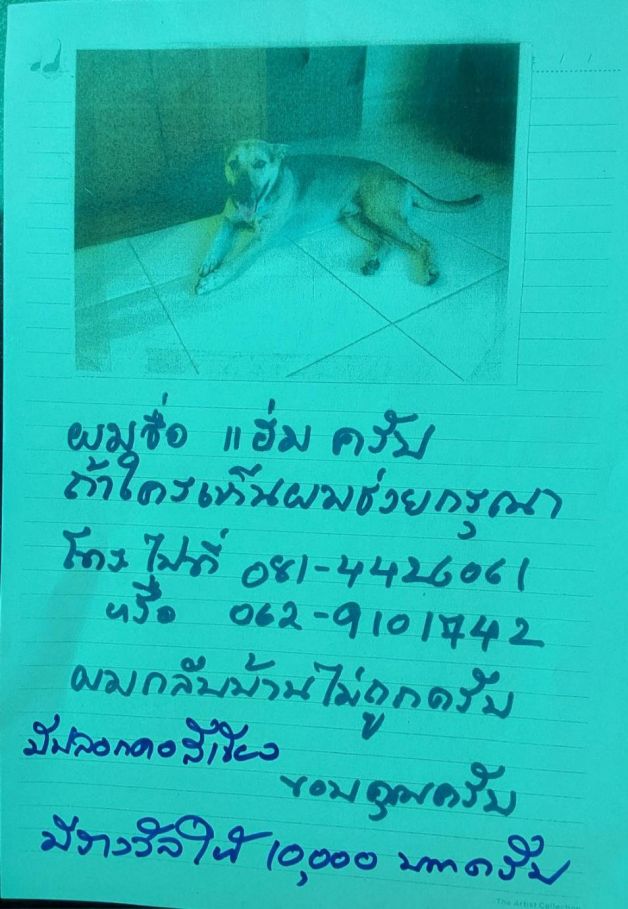 ผมชื่อ แฮ่ม ครับ
ถ้าใครเห็นผมช่วยกรุณา
โทรไปที่ 081-4426061
หรือ 062-9101742
ผมกลับบ้านไม่ถูกครับ
มีปลอกคอสีเขียว
ขอบคุณครับ
มีรางวัลให้ 10,000 บาทครับ
The Artist Collection